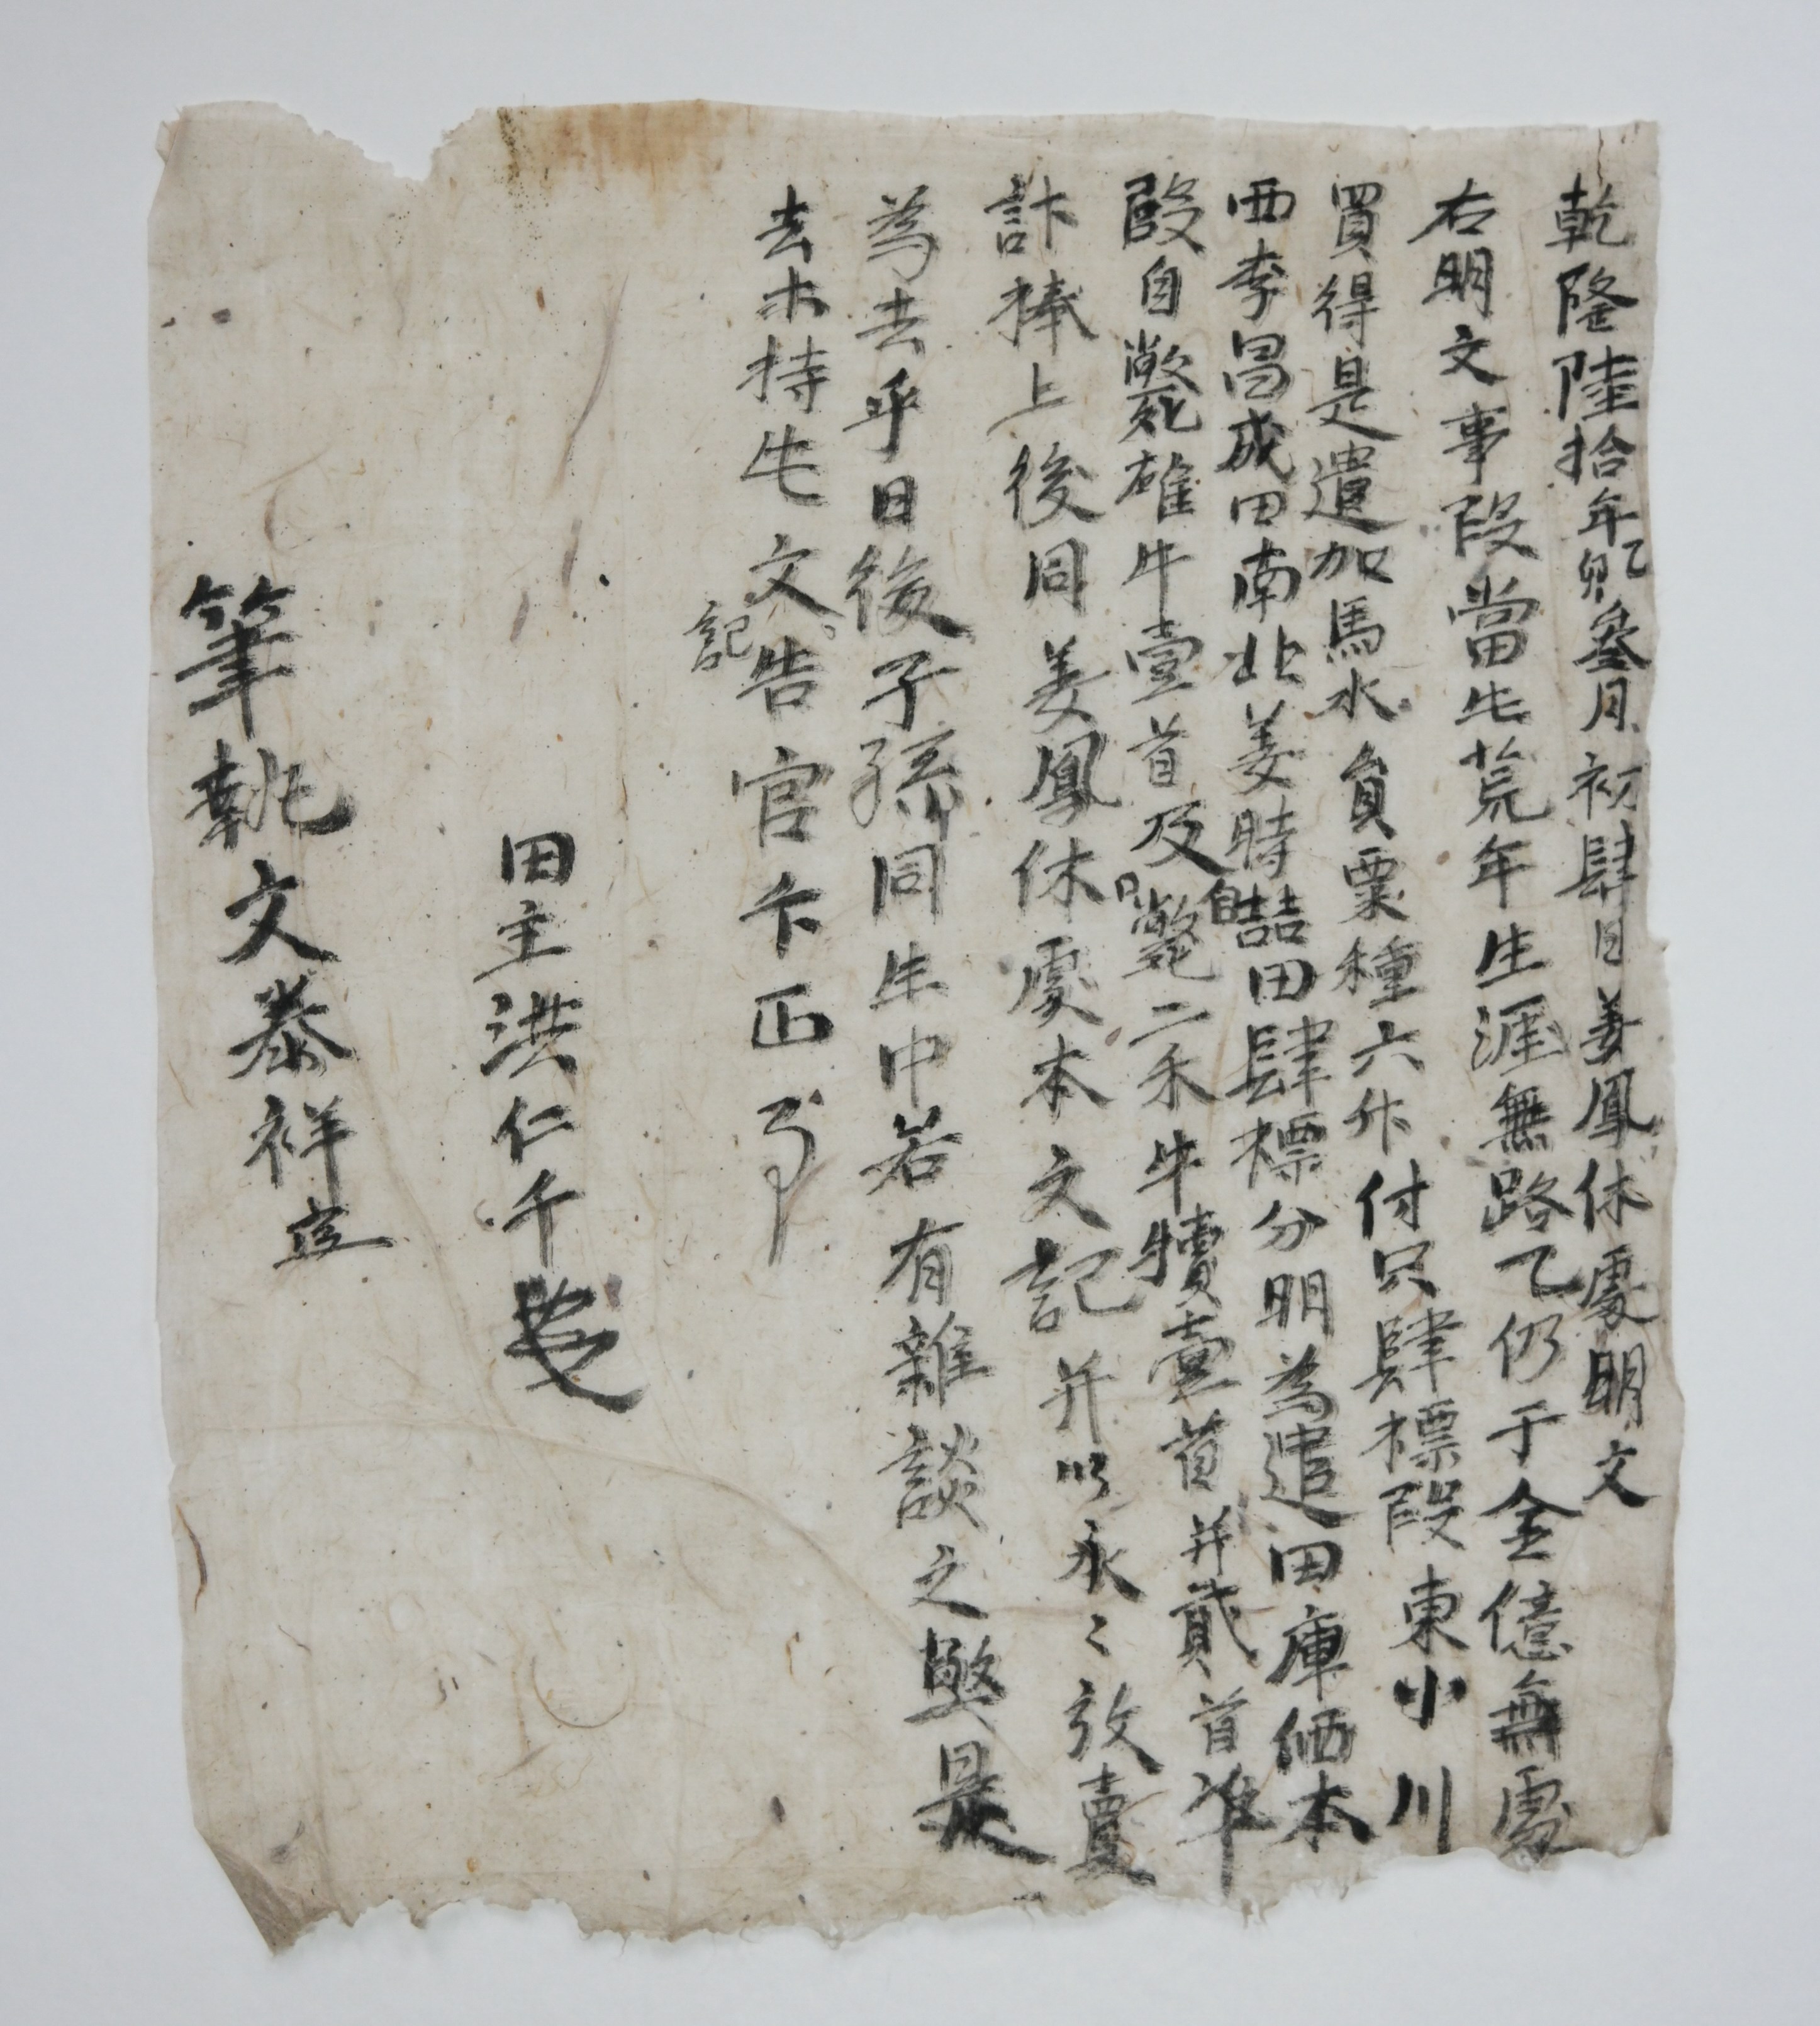 乾隆陸拾年乙卯叄月初肆日姜鳳休處明文
右明文事段當此荒年生涯無路乙仍于金億無處
買得是遣加馬水員粟種六斗付只肆標段東小川
西李昌成田南北姜時喆田肆標分明為遣田庫価本
段自斃雄牛壹首及自斃二禾牛犢壹首并貳首準
計捧上後同姜鳳休處本文記并以永々放賣
為去乎日後子孫同生中若有雜談之弊是
去木持此文記告官卞正事
田主洪仁千
筆執文泰祥